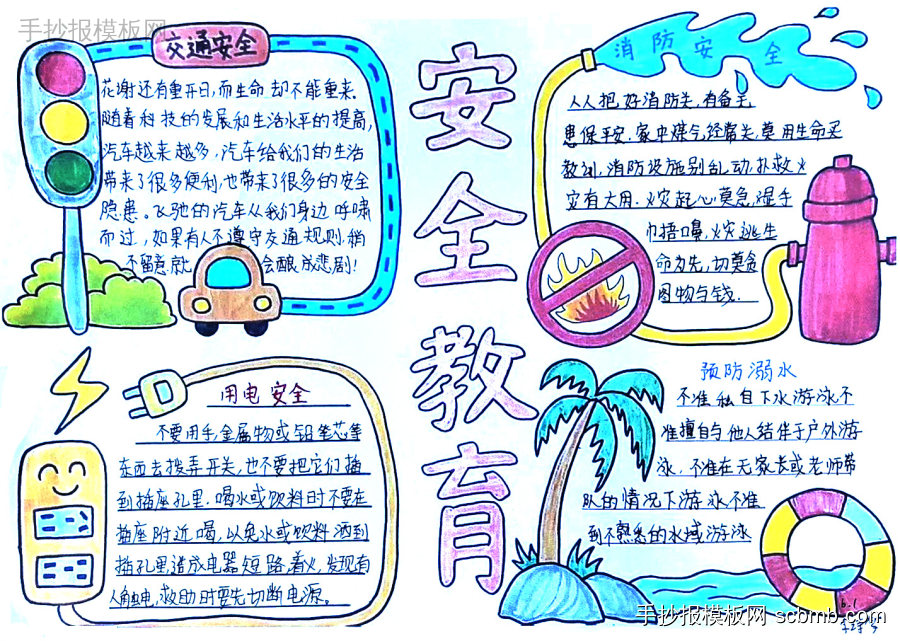 手抄报模板网
交通安全
花谢还有重开日,而生命却不能重来.
随着科技的发展和生活水平的提高,
汽车越来越多,汽车给我们的生活
带来了很多便利,也带来了很多的安全
隐患。飞驰的汽车从我们身边呼啸
而过,如果有人不遵守交通规则,稍
不留意就会酿成悲剧!
安全教育
消防安全
人人把好消防关,有备无
患保平安.家中煤气经常关,莫用生命买
教训,消防设施别乱动,扑救火
灾有大用.火灾起心莫急,湿手
巾捂嘴,火灾逃生
命为先,切莫贪
图物与钱.
用电安全
不要用手,金属物或铅笔芯等
东西去拨弄开关,也不要把它们插
到插座孔里.喝水或饮料时不要在
插座附近喝,以免水或饮料洒到
插孔里造成电器短路,着火,发现有
人触电,救助时要先切断电源。
预防溺水
不准私自下水游泳不
准擅自与他人结伴于户外游
泳.不准在无家长或老师带
队的情况下游泳不准
到不熟悉的水域游泳
手抄报模板网 scbmb.com